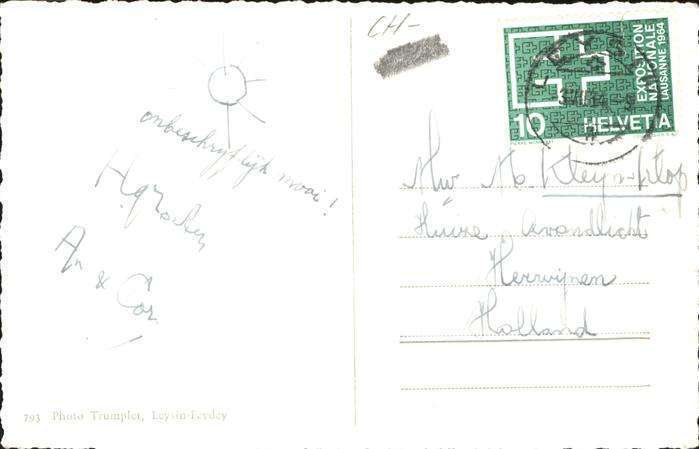 CH-
EXPOSITION
NATIONALE
LAUSANNE 1964
10 HELVETIA
onbeschryflijk mooi!
An & Cor
Mw M. Kleyn-Klop
Huize Avondlicht
Herwijnen
Holland
793 Photo Trumpler, Leysin-Feydey